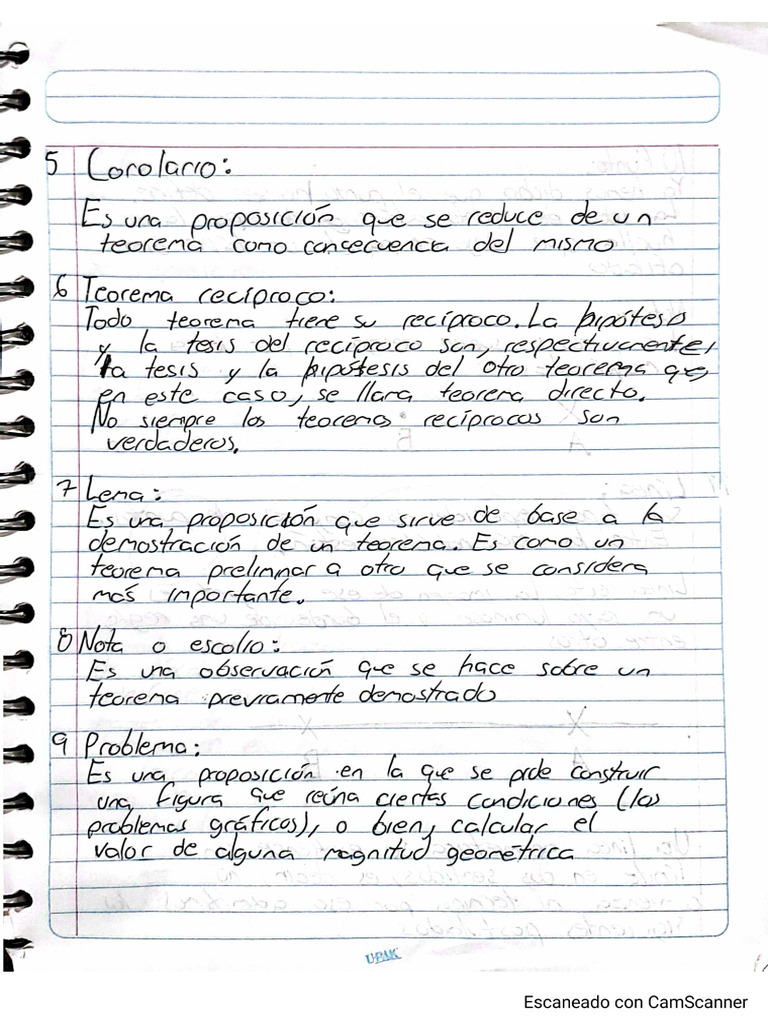 5 Corolario:
Es una proposición que se reduce de un
teorema como consecuencia del mismo
6 Teorema recíproco:
Todo teorema tiene su recíproco. La hipótesis
y la tesis del recíproco son, respectivamente,
la tesis y la hipótesis del otro teorema que,
en este caso, se llama teorema directo.
No siempre los teoremas recíprocos son
verdaderos.
7 Lema:
Es una proposición que sirve de base a la
demostración de un teorema. Es como un
teorema preliminar a otro que se considera
más importante.
8 Nota o escolio:
Es una observación que se hace sobre un
teorema previamente demostrado
9 Problema:
Es una proposición en la que se pide construir
una figura que reúna ciertas condiciones (los
problemas gráficos), o bien, calcular el
valor de alguna magnitud geométrica
UPAK
Escaneado con CamScanner